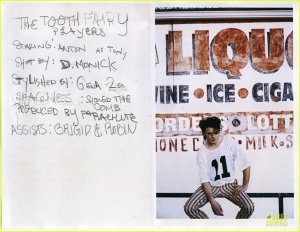 THE TOOTH FAIRY
PLAYERS
STARRING: ANTON AS TONY
SHOT BY: D. MONICK
STYLISHED BY: GENA ZEN
: SIGNED THE COMB
PRODUCED BY PARACHUTE
ASSISTS: BRIGID & ROBIN
LIQU
INE • ICE • CIGA
ORDE LOTT
IONED MILK • S
11